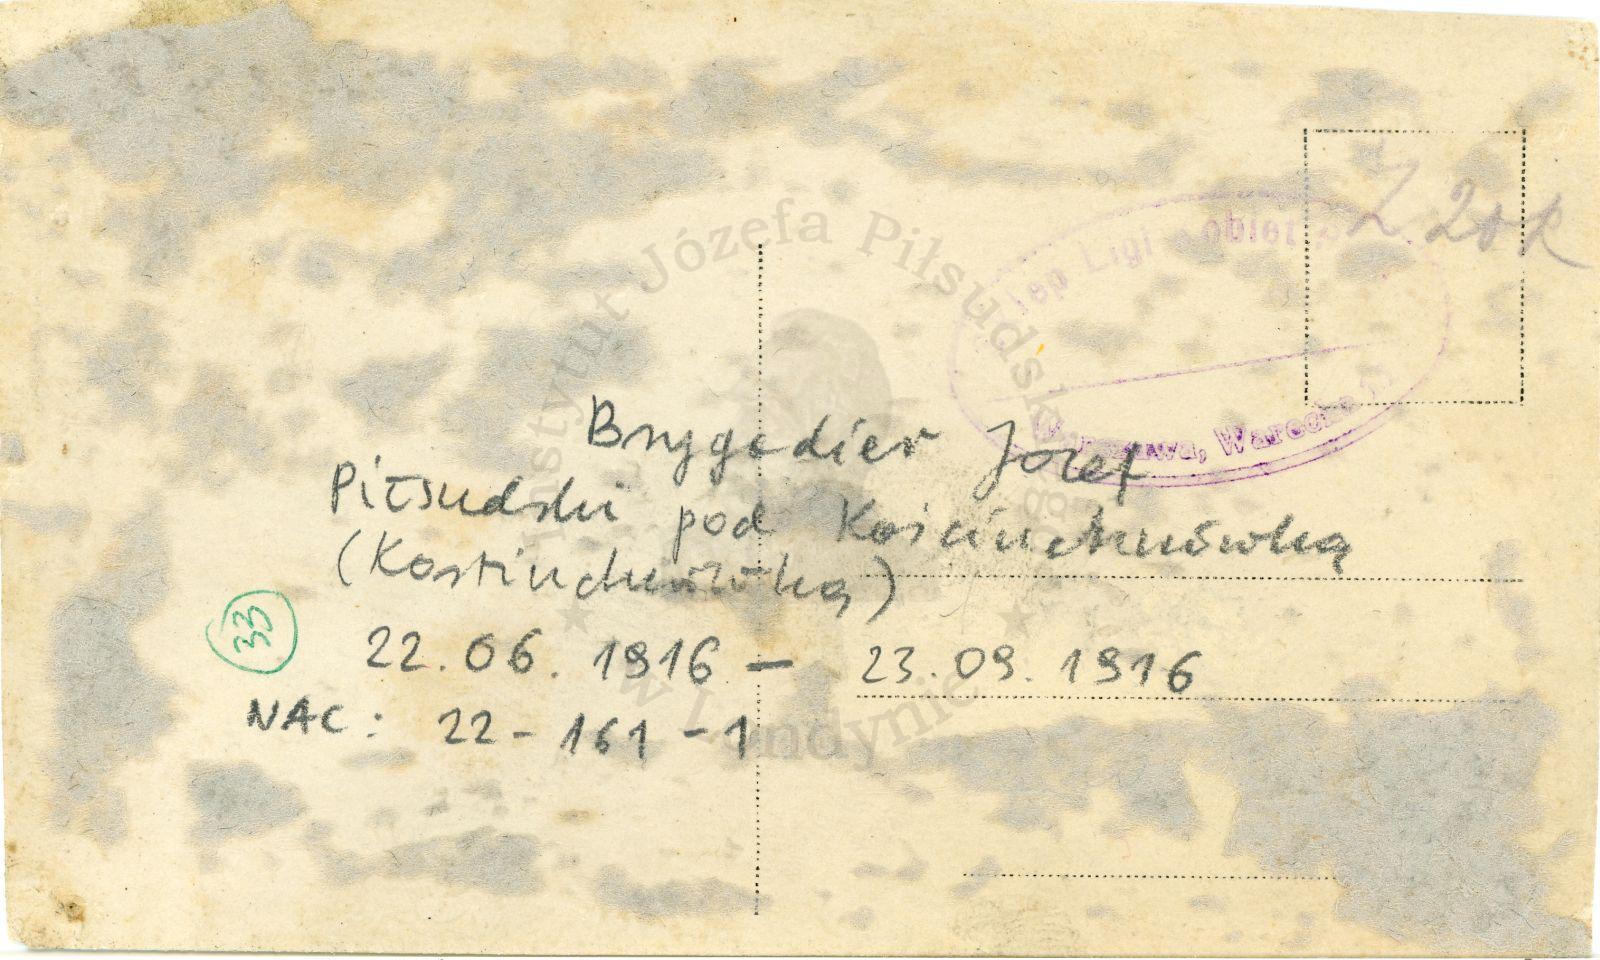 Instytut Józefa Piłsudskiego
w Londynie
Ligi
Warszawa, Warecka
Brygadier Józef
Piłsudski pod Kościuchnówką
(Kostiuchnówką)
33
22.06.1916 – 23.09.1916
NAC: 22-161-1